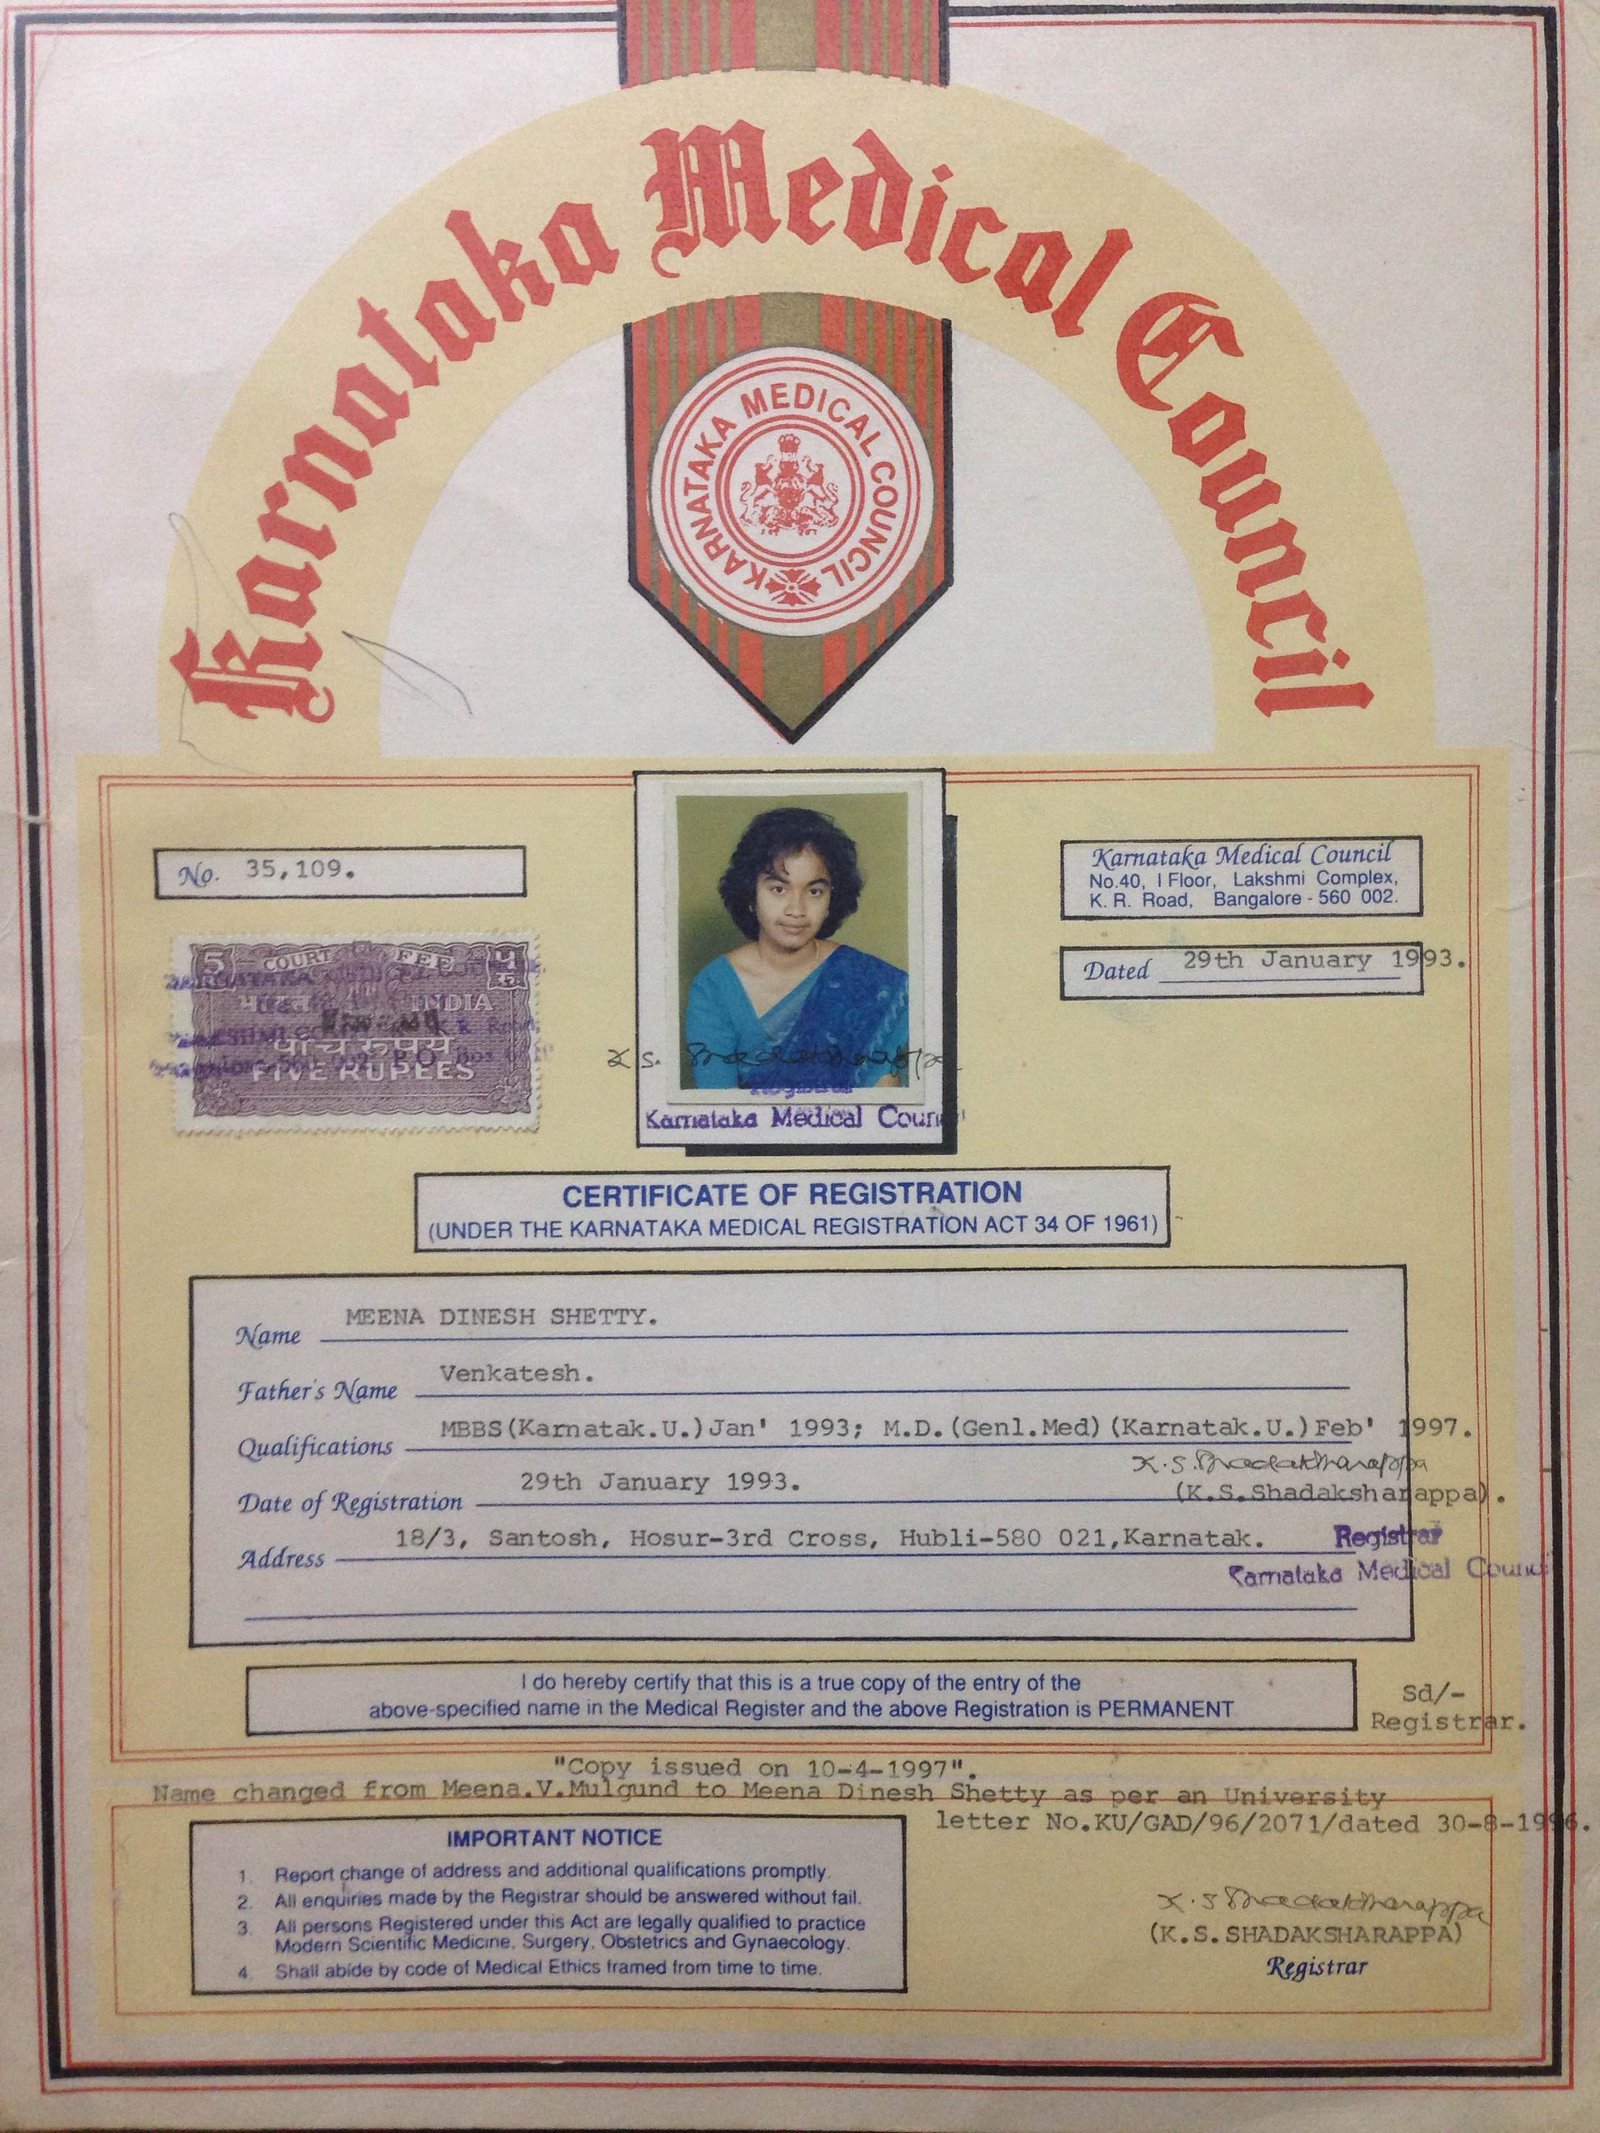 Karnataka Medical Council
KARNATAKA MEDICAL COUNCIL
No. 35,109.
Karnataka Medical Council
No.40, I Floor, Lakshmi Complex,
K. R. Road, Bangalore - 560 002.
Dated 29th January 1993.
5 COURT FEE
INDIA
FIVE RUPEES
K.S. Shadaksharappa
Registrar
Karnataka Medical Council
CERTIFICATE OF REGISTRATION
(UNDER THE KARNATAKA MEDICAL REGISTRATION ACT 34 OF 1961)
Name MEENA DINESH SHETTY.
Father's Name Venkatesh.
Qualifications MBBS(Karnatak.U.)Jan' 1993; M.D.(Genl.Med)(Karnatak.U.)Feb' 1997.
K.S.Shadaksharappa
Date of Registration 29th January 1993. (K.S.Shadaksharappa).
Address 18/3, Santosh, Hosur-3rd Cross, Hubli-580 021,Karnatak. Registrar
Karnataka Medical Council
I do hereby certify that this is a true copy of the entry of the
above-specified name in the Medical Register and the above Registration is PERMANENT
Sd/-
Registrar.
"Copy issued on 10-4-1997".
Name changed from Meena.V.Mulgund to Meena Dinesh Shetty as per an University
letter No.KU/GAD/96/2071/dated 30-8-1996.
IMPORTANT NOTICE
1. Report change of address and additional qualifications promptly.
2. All enquiries made by the Registrar should be answered without fail.
3. All persons Registered under this Act are legally qualified to practice
Modern Scientific Medicine, Surgery, Obstetrics and Gynaecology.
4. Shall abide by code of Medical Ethics framed from time to time.
K.S Shadaksharappa
(K.S.SHADAKSHARAPPA)
Registrar